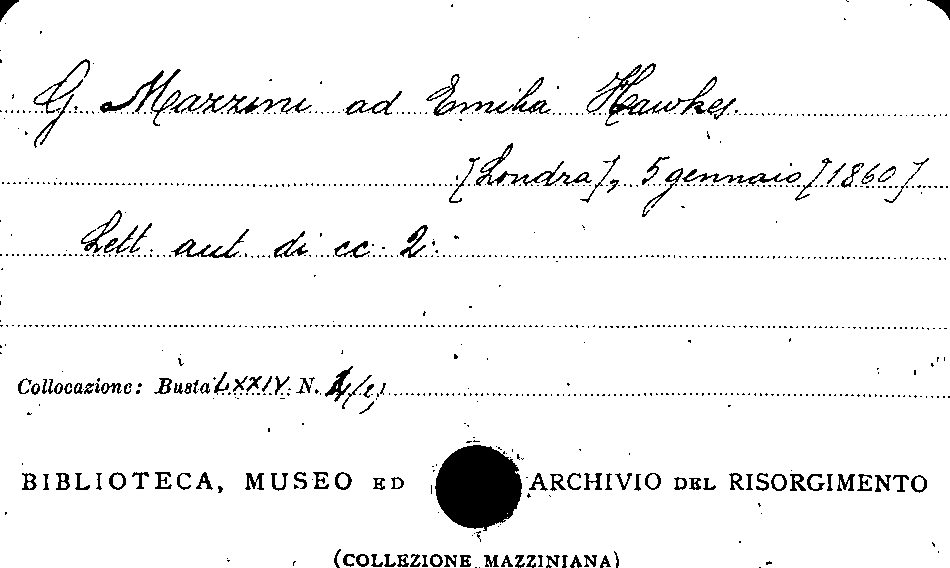 G. Mazzini ad Emilia Hawkes.
[Londra], 5 gennaio [1860]
Lett. aut. di cc. 2.
Collocazione: Busta LXXIV N.
BIBLIOTECA, MUSEO ED ARCHIVIO DEL RISORGIMENTO
(COLLEZIONE MAZZINIANA)